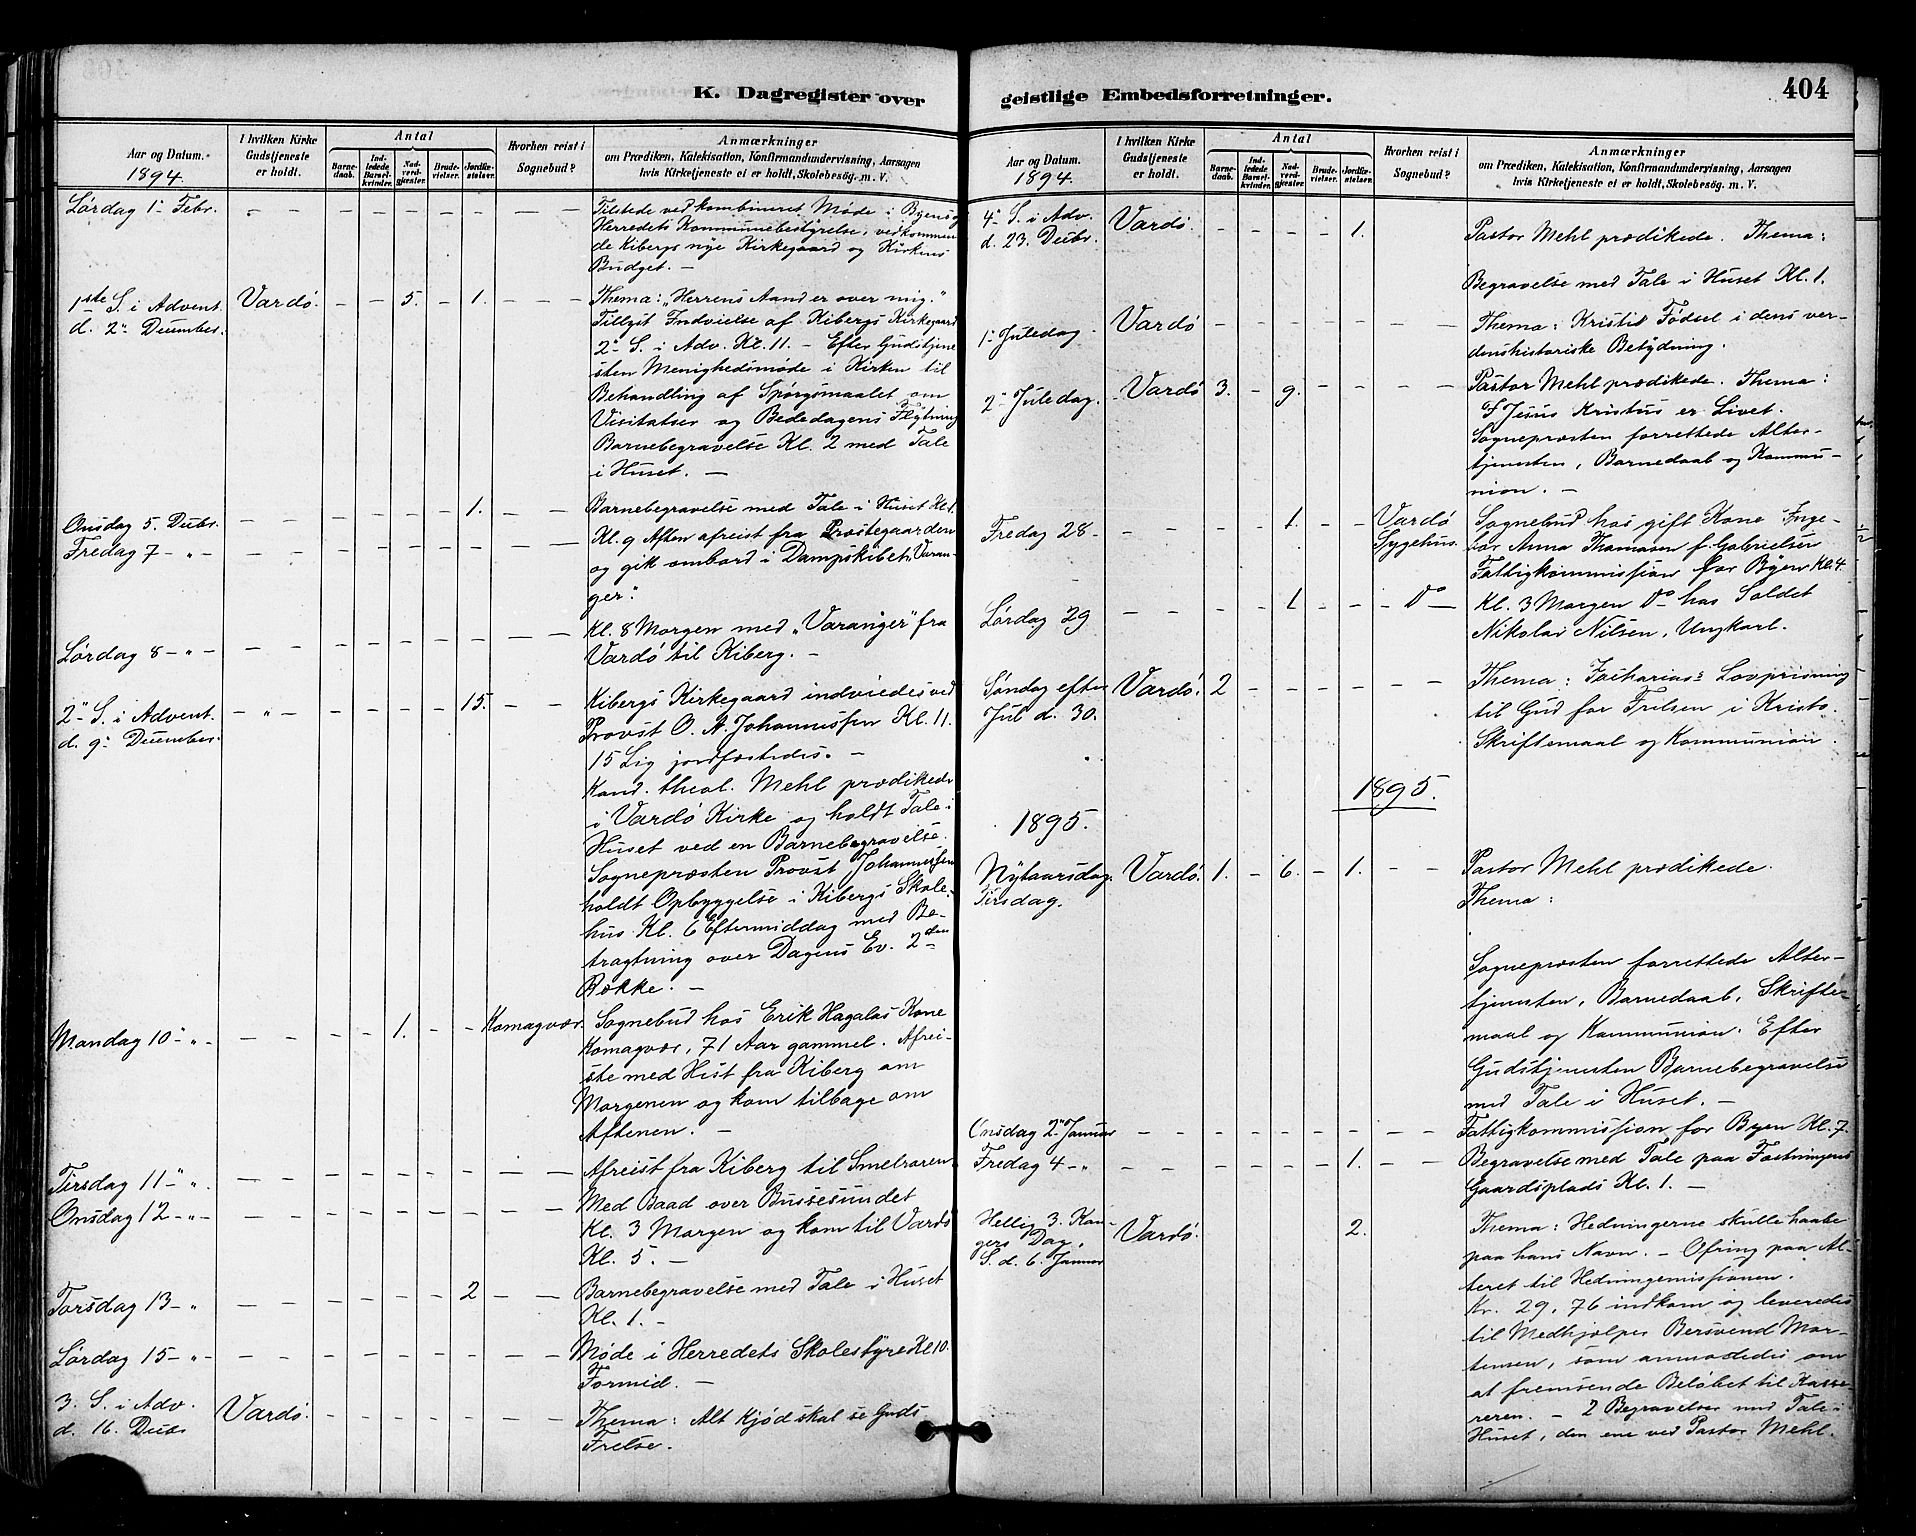 K. Dagregister over
Aar og Datum.
1894.
I hvilken Kirke
Gudstjeneste
er holdt.
Antal
Barne-
daab.
Ind-
ledede
Barsel-
kvinder.
Nad-
verd-
gjester.
Brude-
vielser.
Jordfæ-
stelser.
Hvorhen reist i
Sognebud?
Anmærkninger
om Prædiken, Katekisation, Konfirmandundervisning, Aarsagen
hvis Kirketjeneste ei er holdt, Skolebesøg. m. V.
Lørdag 1 Febr. - - - - - - - - -
Tilstede ved kombineret Møde i Byens og
Herredets Kommunebestyrelse, vedkommen
de Kibergs nye Kirkegaard og Kirkens
Budget. -
1ste S. i Advent
d. 2" December. Vardö. - - 5. - 1. - -
Thema: "Herrens Aand er over mig."
Tillyst Indvielse af Kibergs Kirkegaard
2" S. i Adv. Kl. 11. - Efter Gudstjene
sten Menighedsmøde i Kirken til
Behandling af Spørgsmaalet om
Visitatser og Bededagens Flytning
Barnebegravelse Kl. 2 med Tale
i Huset. -
Onsdag 5. Decbr. - - - - - - 1. - -
Barnebegravelse med Tale i Huset Kl. 1.
Fredag 7 - " - - - - - - - - - -
Kl. 9 Aften afreist fra Præstegaarden
og gik ombord i Dampskibet "Varan-
ger".
Lørdag 8 - " - - - - - - - - - -
Kl. 8 Morgen med "Varanger" fra
Vardö til Kiberg. -
2" S. i Advent.
d. 9" December. - " - - - - - 15. - -
Kibergs Kirkegaard indviedes ved
Provst O. A. Johannessen Kl. 11.
15 Lig jordfæstedes. -
Kand. theol. Mehl prædikede
i Vardö Kirke og holdt Tale i
Huset ved en Barnebegravelse.
Sognepræsten Provst Johannessen
holdt Opbyggelse i Kibergs Skole-
hus Kl. 6 Eftermiddag med Be-
tragtning over Dagens Ev. 2den
Række. -
Mandag 10 - " - - - - - 1. - - Komagvær.
Sognebud hos Erik Hagalas Kone
Komagvær, 71 Aar gammel. Afrei-
ste med Hest fra Kiberg om
Morgenen og kom tilbage om
Aftenen. -
Tirsdag 11 - " - - - - - - - - - -
Afreist fra Kiberg til Smelroren.
Onsdag 12 - " - - - - - - - - - -
Med Baad over Bussesundet
Kl. 3 Morgen og kom til Vardö
Kl. 5. -
Torsdag 13 - " - - - - - - 2 - -
Barnebegravelse med Tale i Huset
Kl. 1. -
Lørdag 15 - " - - - - - - - - - -
Møde i Herredets Skolestyre Kl 10.
Formid. -
3. S. i Adv.
d. 16. Decbr Vardö. - - - - - - -
Thema: Alt Kjød skal se Guds
Frelse.
geistlige Embedsforretninger.
404
Aar og Datum.
1894.
I hvilken Kirke
Gudstjeneste
er holdt.
Antal
Barne-
daab.
Ind-
ledede
Barsel-
kvinder.
Nad-
verd-
gjester.
Brude-
vielser.
Jordfæ-
stelser.
Hvorhen reist i
Sognebud?
Anmærkninger
om Prædiken, Katekisation, Konfirmandundervisning, Aarsagen
hvis Kirketjeneste ei er holdt, Skolebesøg. m. V.
4" S. i Adv.
d. 23. Decbr. Vardö. - - - - 1.
Pastor Mehl prædikede. Thema:
Begravelse med Tale i Huset Kl. 1.
1" Juledag. Vardö - - - - - - -
Thema: Kristi Fødsel i dens ver-
denshistoriske Betydning.
2" Juledag. Vardö 3. - 9. - - - -
Pastor Mehl prædikede. Thema:
Jesus Kristus er Livet.
Sognepræsten forrettede Alter-
tjenesten, Barnedaab og Kommu-
nion. -
Fredag 28 - - - - - 1. - - Vardö
Sygehus.
Sognebud hos gift Kone Inge-
bor Anna Thomasen f. Gabrielsen
Fattigkommission for Byen Kl. 4.
Lørdag 29 - - - - 1 - - - Do -
Kl. 3 Morgen Do hos Soldat
Nikolai Nilsen, Ungkarl.
Søndag efter
Jul d. 30. Vardö. 2 - - - - - -
Thema: Zacharias's Lovprisning
til Gud for Frelsen i Kristo.
Skriftemaal og Kommunion.
1895.
1895.
Nytaarsdag.
Tirsdag. Vardö. 1. - 6. - 1. - -
Pastor Mehl prædikede.
Thema:
Sognepræsten forrettede Alter-
tjenesten, Barnedaab, Skrifte-
maal og Kommunion. Efter
Gudstjenesten Barnebegravelse
med Tale i Huset. -
Onsdag 2" Januar - - - - - - - -
Fattigkommission for Byen Kl. 7.
Fredag 4 - " - - - - - 1. - -
Begravelse med Tale paa Fæstningens
Gaardsplads Kl. 1. -
Hellig 3. Kon-
gers Dag,
S. d. 6. Januar Vardö. 2.
Thema: Hedningerne skulle haabe
paa hans Navn. - Ofring paa Al-
teret til Hedningemissionen.
Kr. 29,76 indkom og leveredes
til Medhjælper Bersvend Mor-
tensen, som anmodedes om
at fremsende Beløbet til Kasse-
reren. - 2 Begravelser med Tale i
Huset, den ene ved Pastor Mehl.